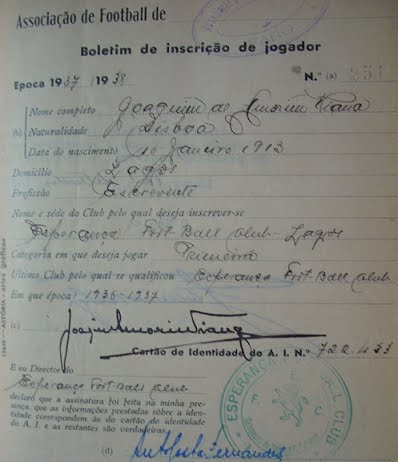 Associação de Football de
Boletim de inscrição de jogador
Epoca 1937 / 1938 N.º (a) 251
Nome completo Joaquim de Amorim Viana
(b) Naturalidade Lisboa
Data do nascimento 10 Janeiro 1913
Domicílio Lagos
Profissão Escrevente
Nome e séde do Club pelo qual deseja inscrever-se
Esperança Foot Ball Club - Lagos
Categoria em que deseja jogar Primeira
Último Club pelo qual se qualificou Esperança Foot Ball Club
Em que época? 1936-1937
(c) Joaquim Amorim Viana
Cartão de Identidade do A. I. N.º 722455
E eu Director do
Esperança Foot-Ball Club
declaro que a assinatura foi feita na minha pre-
sença, que as informações prestadas sôbre a iden-
tidade correspondem às do cartão de identidade
do A. I. e as restantes são verdadeiras.
(d) Fernandes
ESPERANÇA CLUB